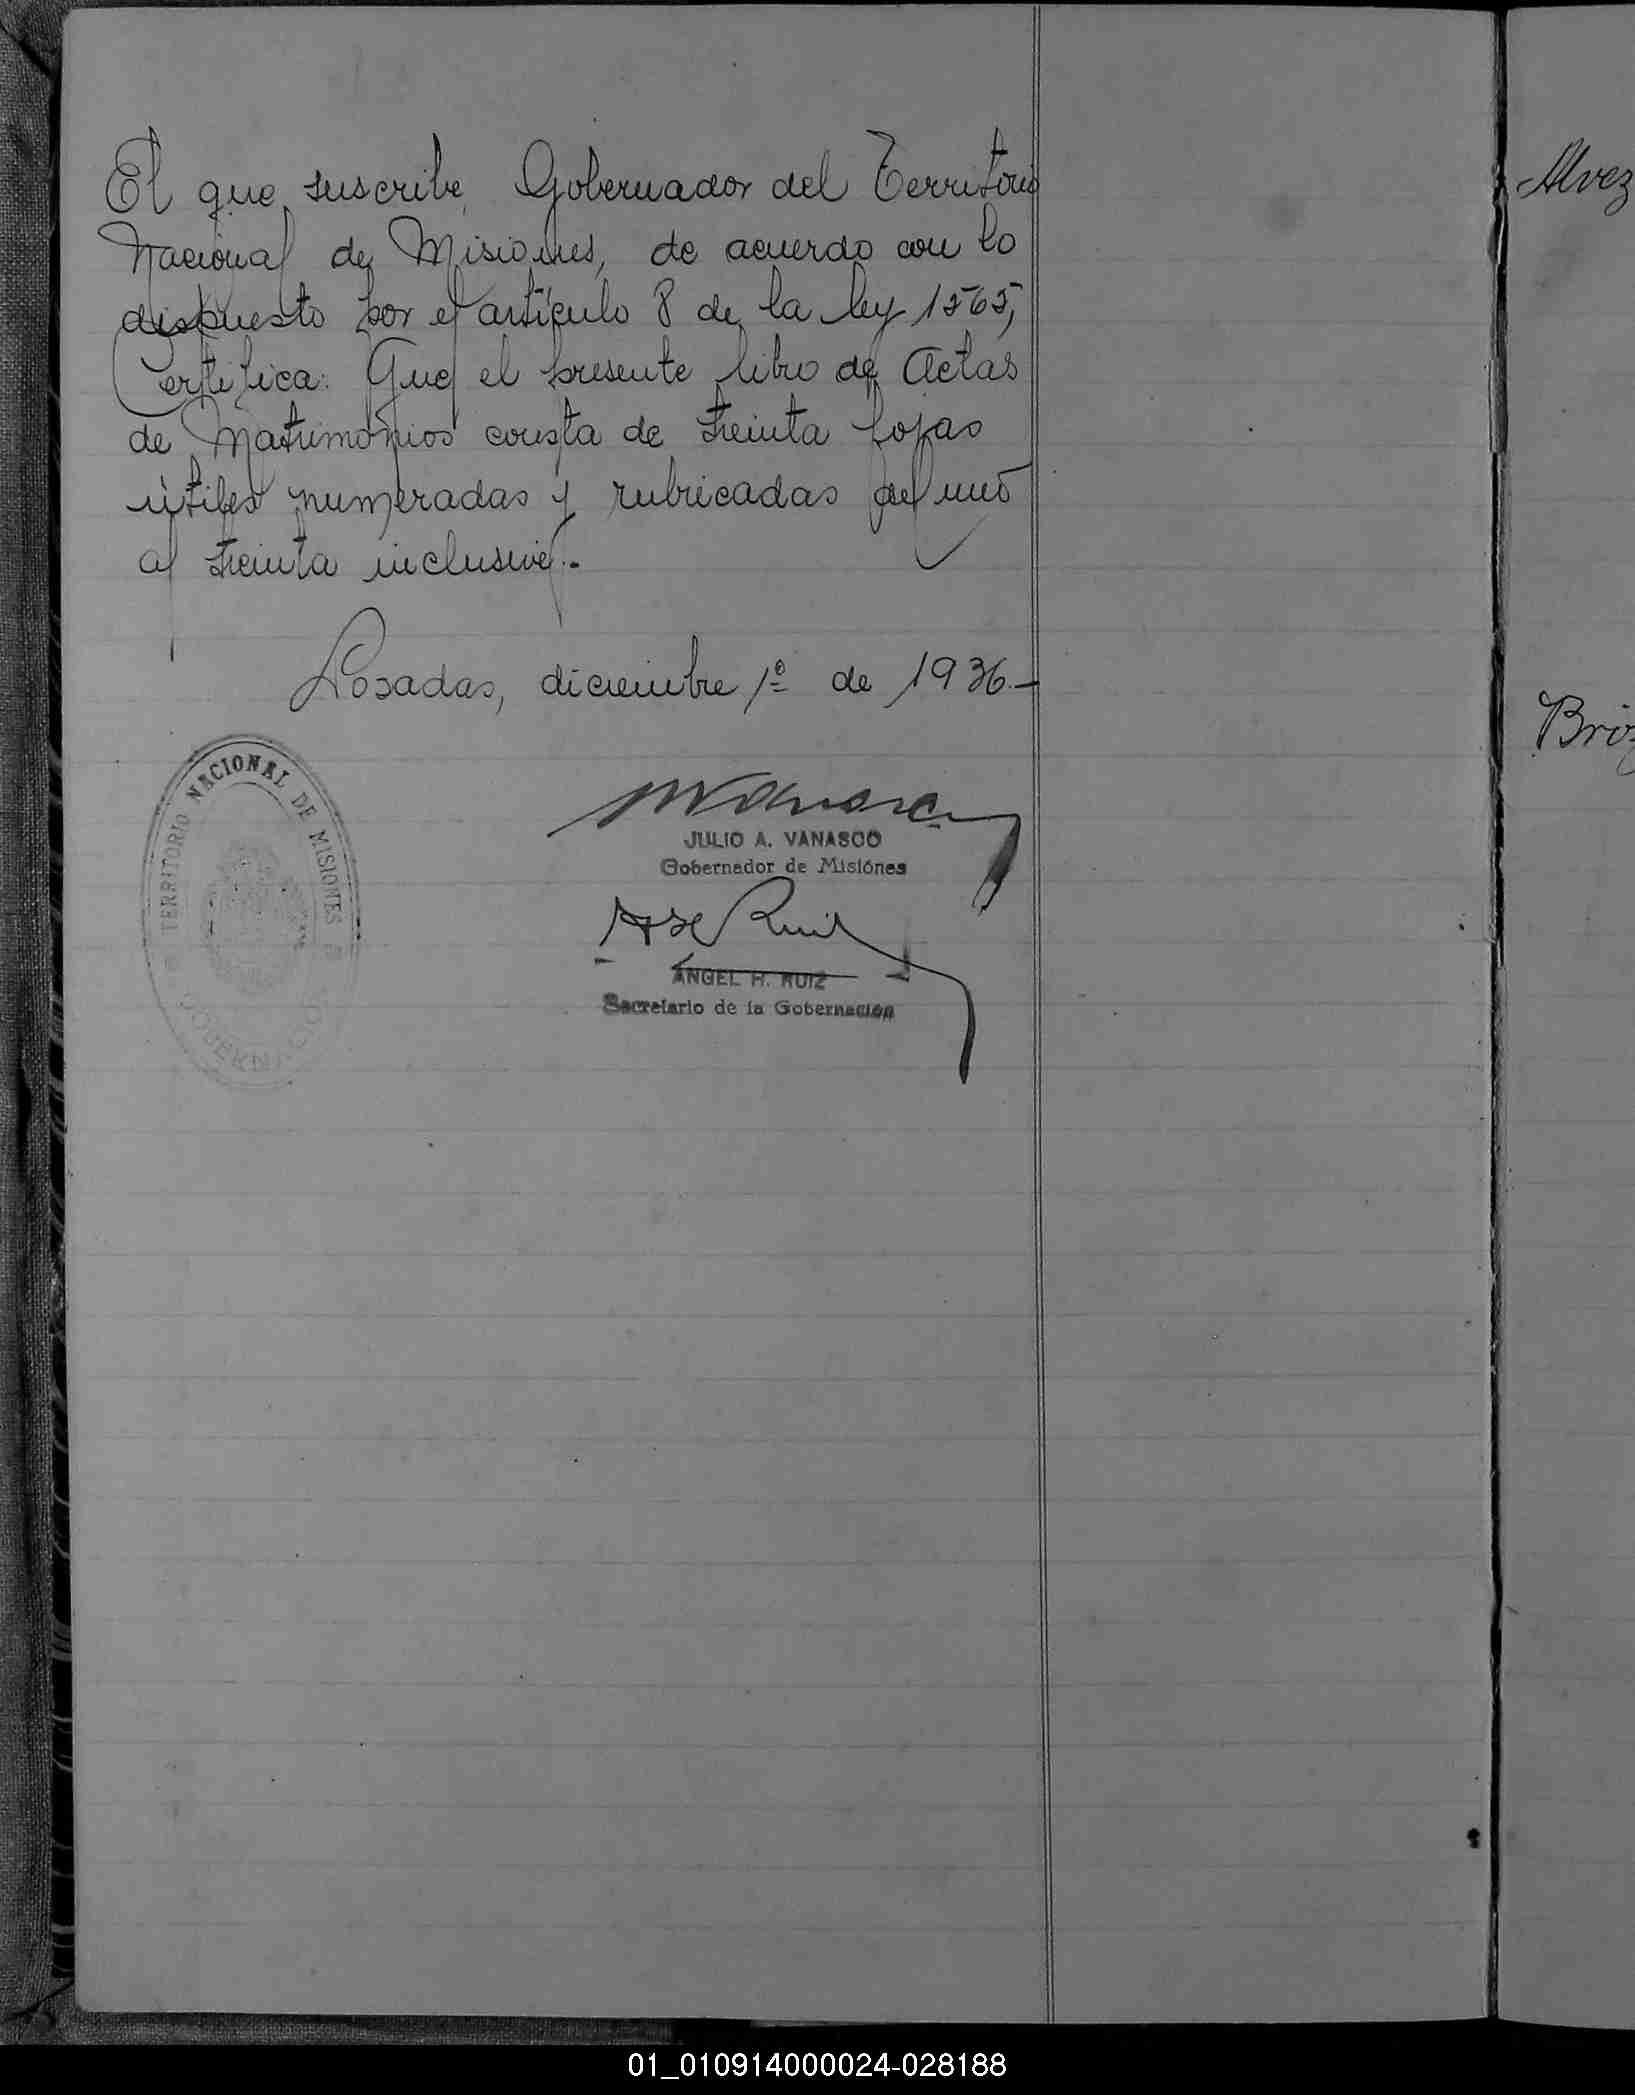 El que suscribe, Gobernador del Territorio
Nacional de Misiones, de acuerdo con lo
dispuesto por el artículo 8 de la ley 1565,
Certifica: Que el presente libro de Actas
de Matrimonios consta de treinta fojas
útiles numeradas y rubricadas del uno
al treinta inclusive.-
Posadas, diciembre 1º de 1936.-
TERRITORIO NACIONAL DE MISIONES
GOBERNACION
JULIO A. VANASCO
Gobernador de Misiones
ANGEL H. RUIZ
Secretario de la Gobernación
Alvez
01_010914000024-028188